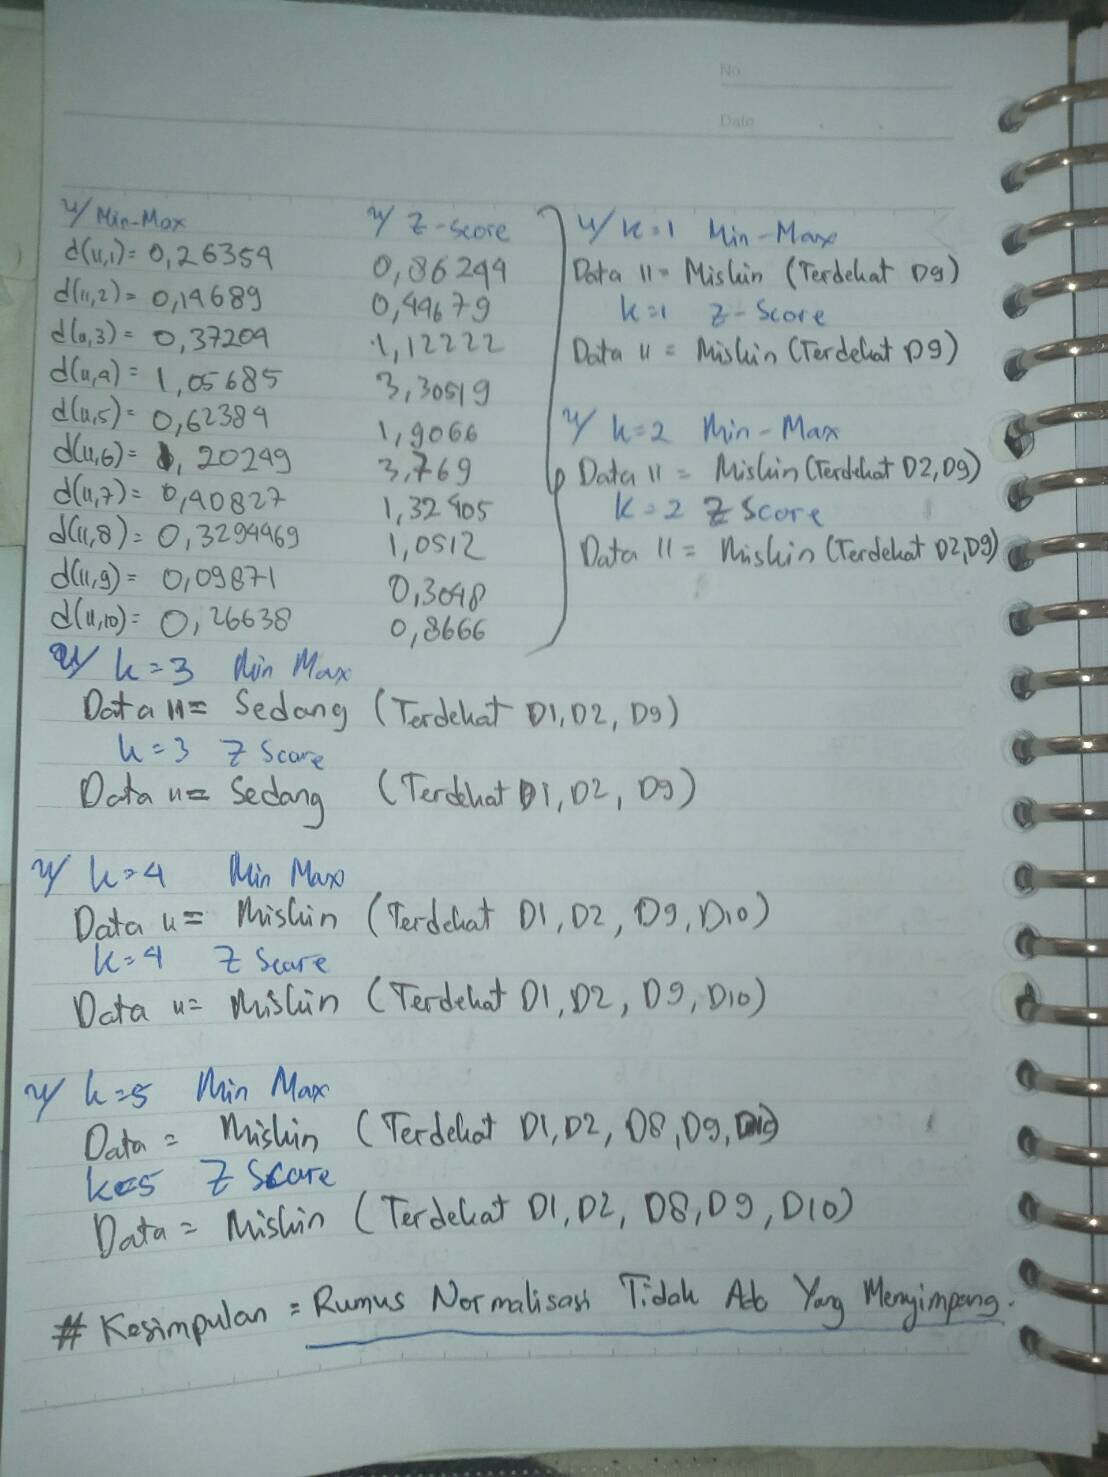 No
Date
u/ Min-Max
d(11,1) = 0,26354
d(11,2) = 0,14689
d(11,3) = 0,37204
d(11,4) = 1,05685
d(11,5) = 0,62384
d(11,6) = 1,20249
d(11,7) = 0,40827
d(11,8) = 0,3294469
d(11,9) = 0,09871
d(11,10) = 0,26638
u/ Z-score
0,86244
0,44679
1,12222
3,30519
1,9066
3,769
1,32405
1,0512
0,3048
0,8666
u/ k=1 Min-Max
Data 11 = Miskin (Terdekat D9)
k=1 Z-Score
Data 11 = Miskin (Terdekat D9)
u/ k=2 Min-Max
Data 11 = Miskin (Terdekat D2, D9)
k=2 Z Score
Data 11 = Miskin (Terdekat D2, D9)
u/ k=3 Min Max
Data 11 = Sedang (Terdekat D1, D2, D9)
k=3 Z Score
Data 11 = Sedang (Terdekat D1, D2, D9)
u/ k=4 Min Max
Data 11 = Miskin (Terdekat D1, D2, D9, D10)
k=4 Z Score
Data 11 = Miskin (Terdekat D1, D2, D9, D10)
u/ k=5 Min Max
Data = Miskin (Terdekat D1, D2, D8, D9, D10)
k=5 Z Score
Data = Miskin (Terdekat D1, D2, D8, D9, D10)
# Kesimpulan = Rumus Normalisasi Tidak Ada Yang Menyimpang.